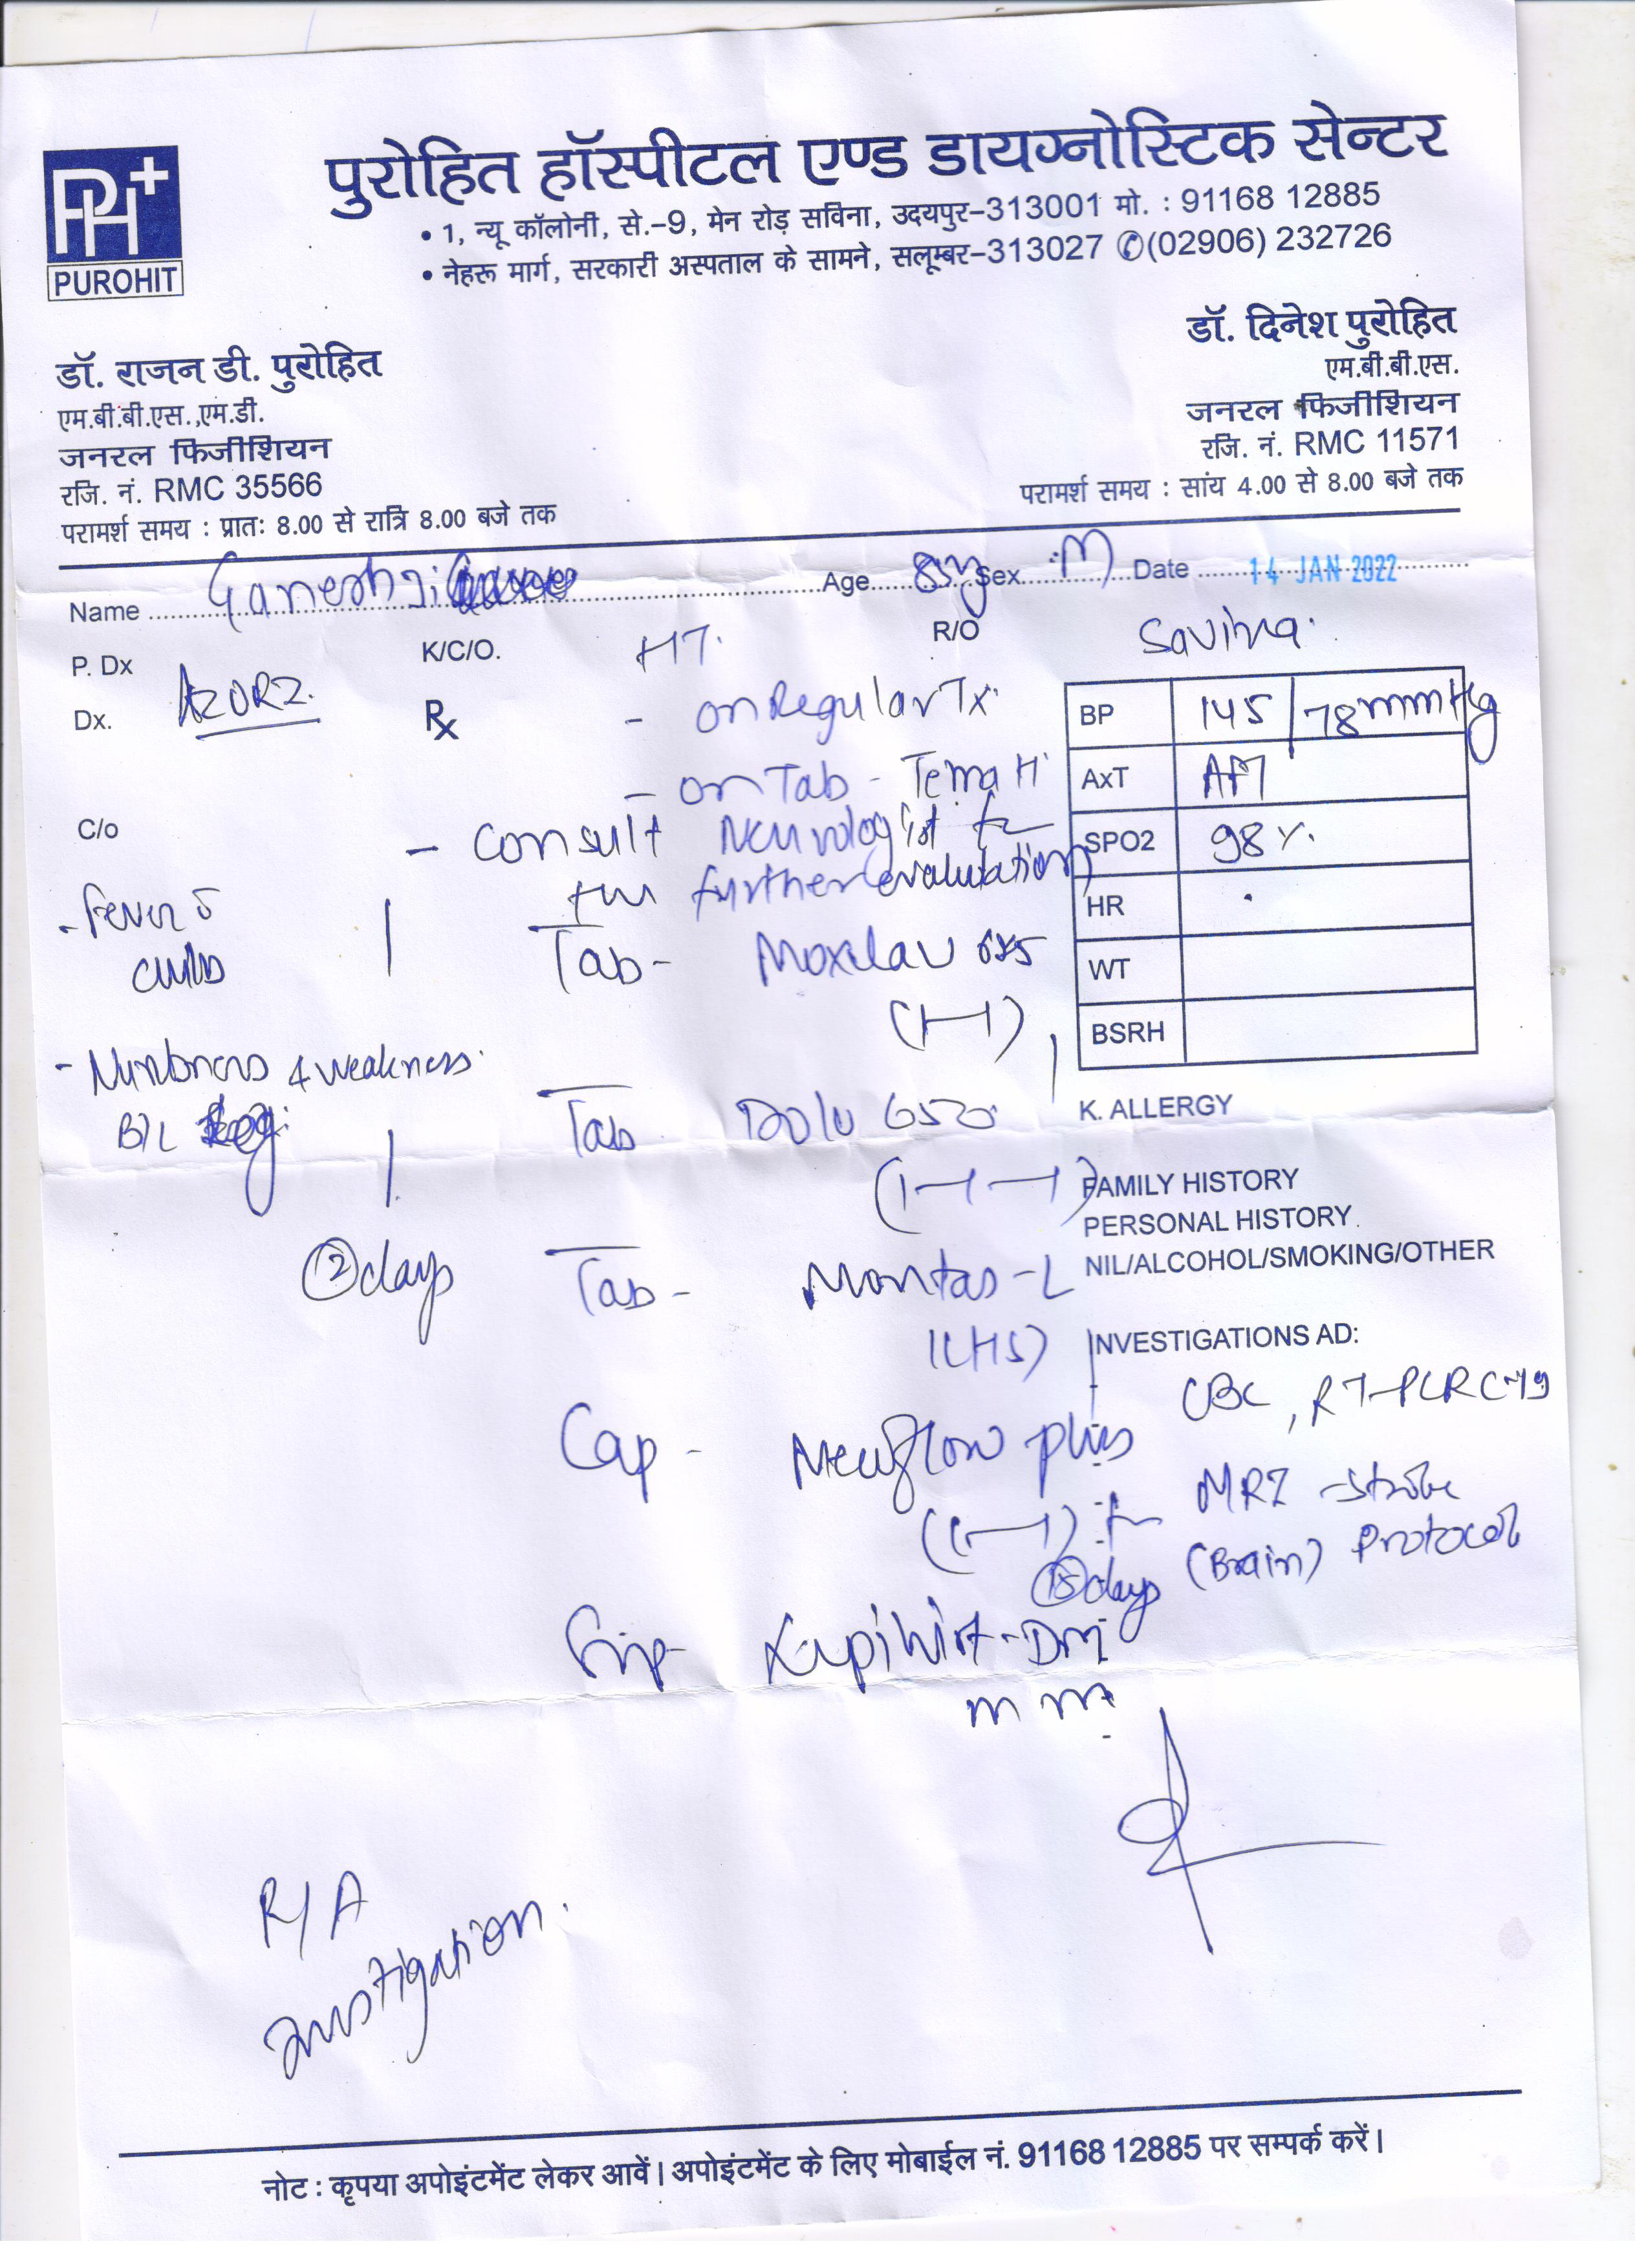 PH+
PUROHIT
पुरोहित हॉस्पीटल एण्ड डायग्नोस्टिक सेन्टर
• 1, न्यू कॉलोनी, से.-9, मेन रोड़ सविना, उदयपुर-313001 मो. : 91168 12885
• नेहरू मार्ग, सरकारी अस्पताल के सामने, सलूम्बर-313027 ✆(02906) 232726
डॉ. राजन डी. पुरोहित
एम.बी.बी.एस.,एम.डी.
जनरल फिजीशियन
रजि. नं. RMC 35566
परामर्श समय : प्रातः 8.00 से रात्रि 8.00 बजे तक
डॉ. दिनेश पुरोहित
एम.बी.बी.एस.
जनरल फिजीशियन
रजि. नं. RMC 11571
परामर्श समय : सांय 4.00 से 8.00 बजे तक
Name Ganeshji Age 85y Sex M Date 14 JAN 2022
P. Dx K/C/O. HT. R/O Savina.
Dx.
Rx - on Regular Tx.
- on Tab - Tema H
BP 145/78 mmHg
AxT
SPO2 98%
HR
WT
BSRH
C/o
- Consult Neurologist
further evalutation
- Fever c̄
chills
- Numbness & weakness.
B/L leg
2 days
Tab - Moxclav 625
(1-1)
Tab Dolo 650
(1-1-1)
Tab - Montas-L
1(HS)
Cap - Neuflow plus
(1-1)
15 days
Syp
DM
K. ALLERGY
FAMILY HISTORY
PERSONAL HISTORY
NIL/ALCOHOL/SMOKING/OTHER
INVESTIGATIONS AD:
CBC, RT-PCR C-19
MRI - stroke
(Brain) Protocol
R/A
investigation.
नोट : कृपया अपोइंटमेंट लेकर आवें। अपोइंटमेंट के लिए मोबाईल नं. 91168 12885 पर सम्पर्क करें।